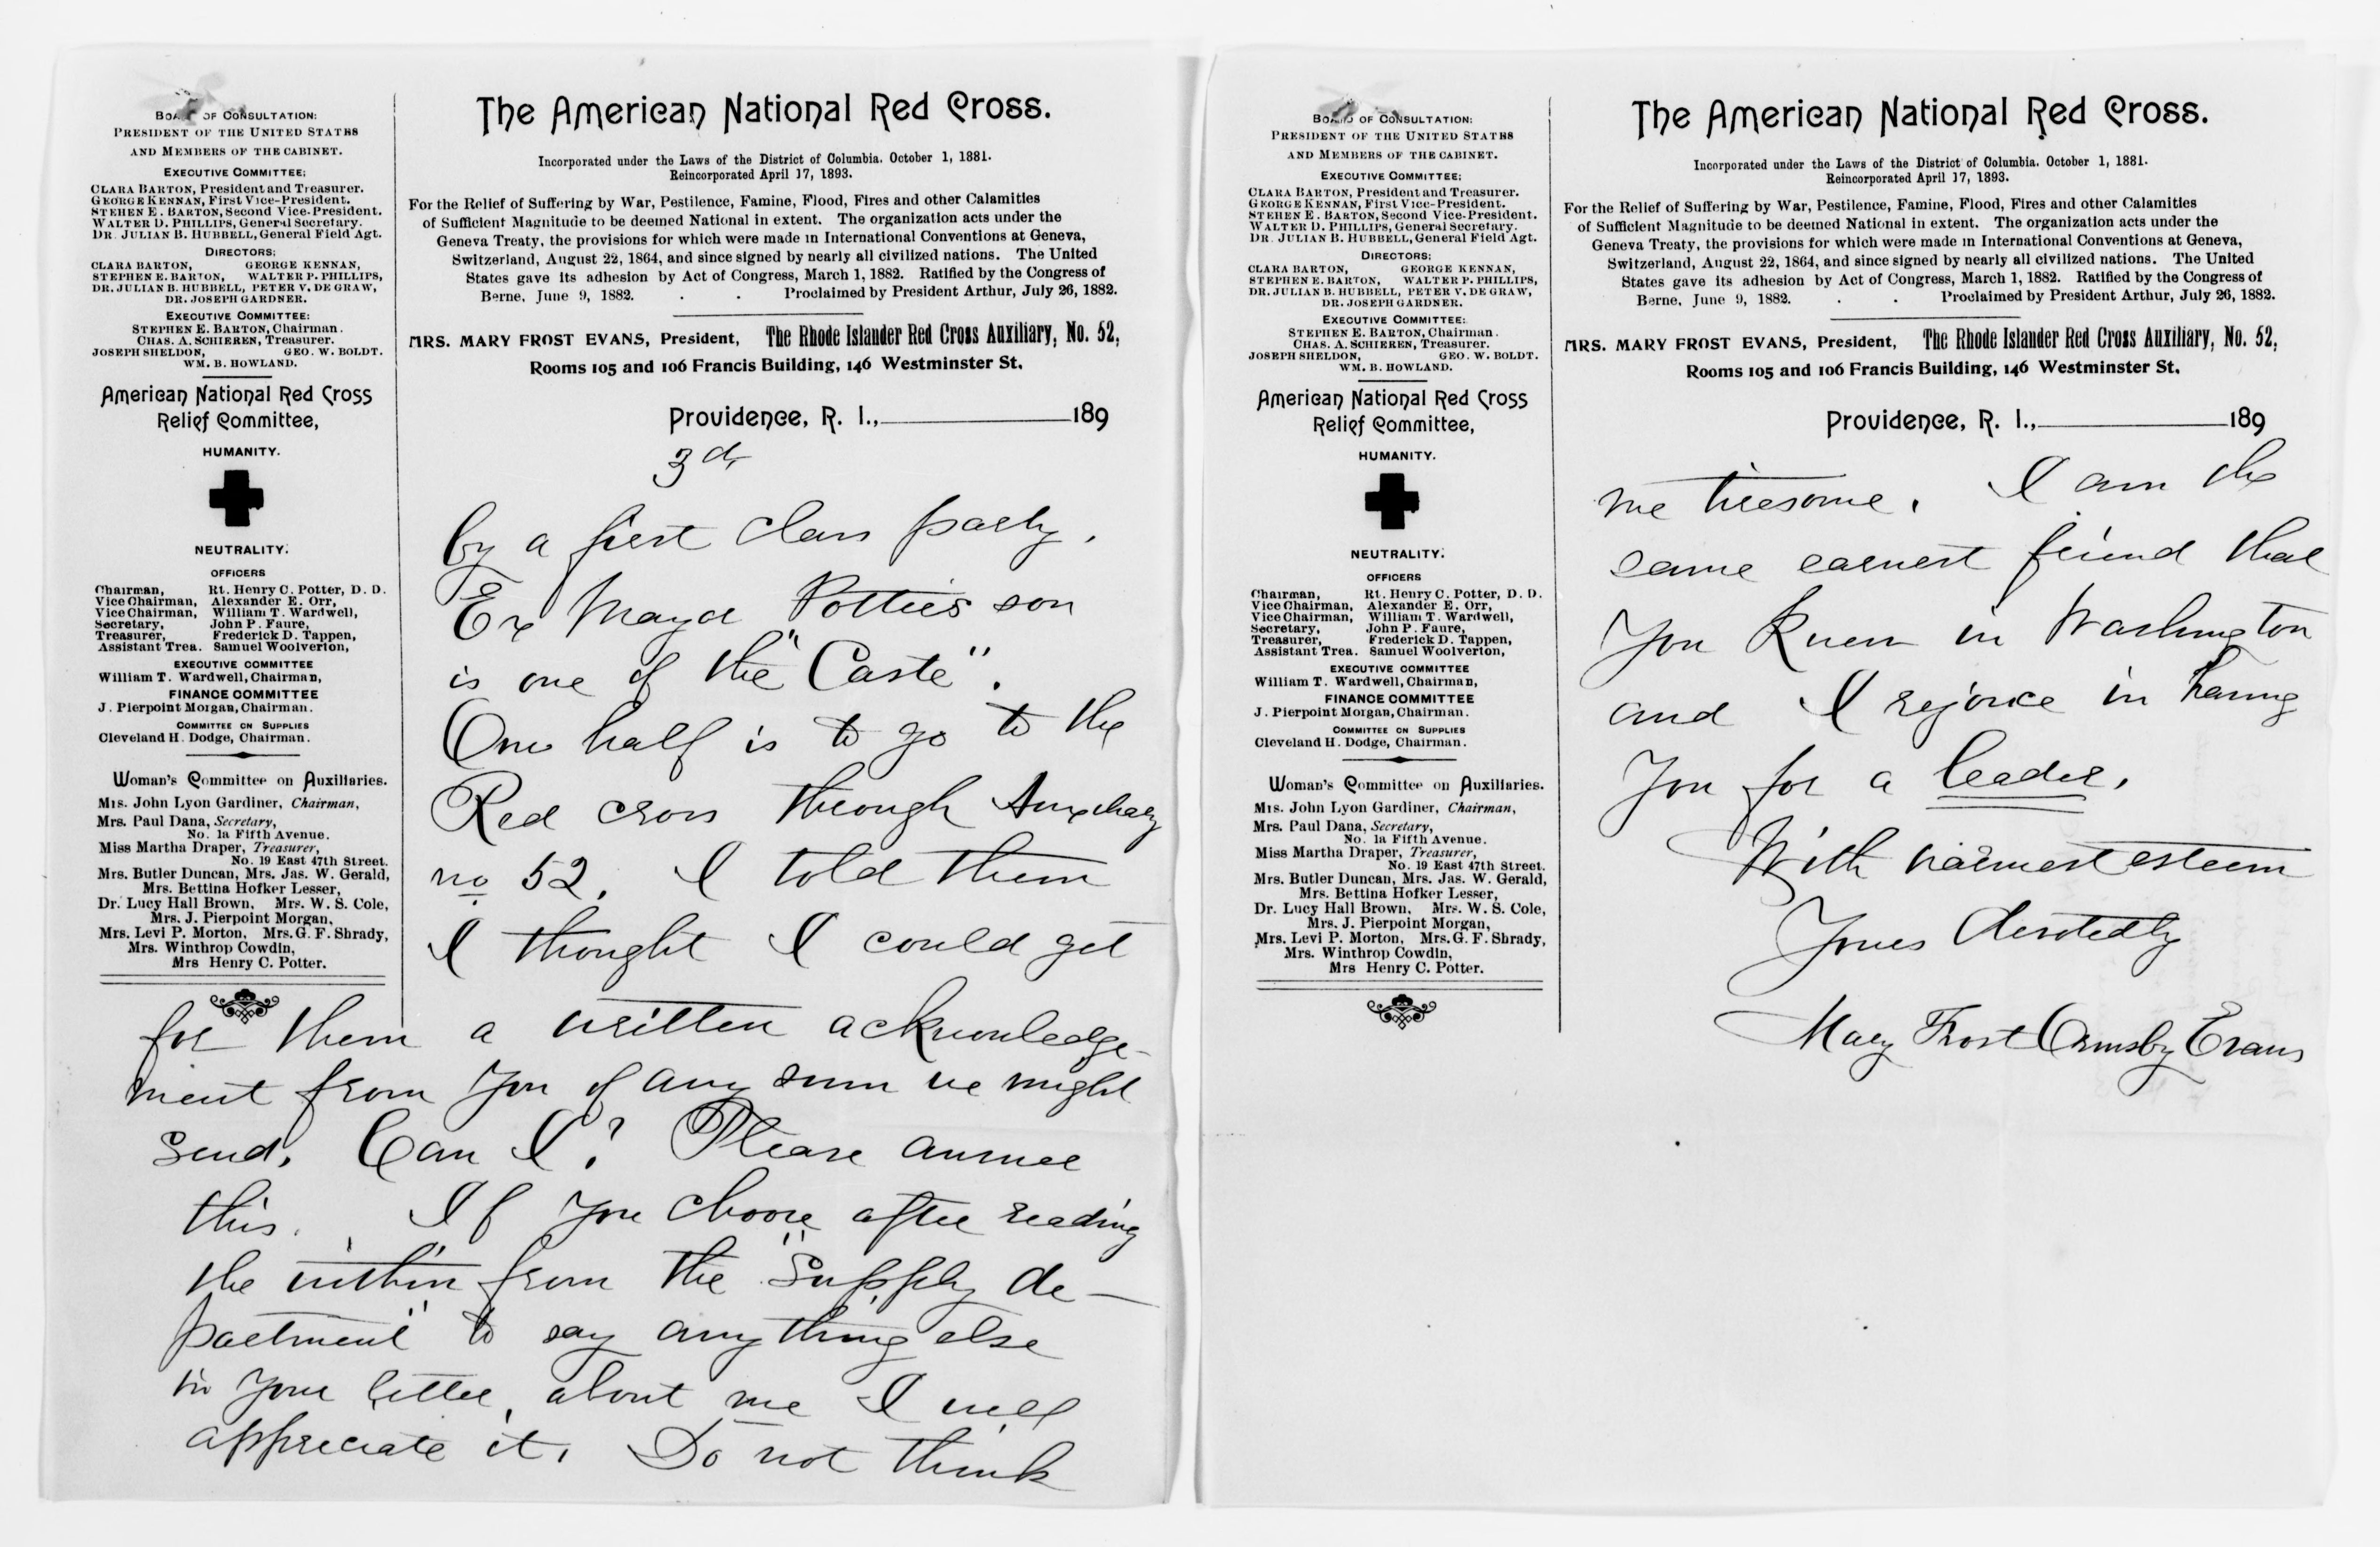 BOARD OF CONSULTATION:
PRESIDENT OF THE UNITED STATES
AND MEMBERS OF THE CABINET.
EXECUTIVE COMMITTEE;
CLARA BARTON, President and Treasurer.
GEORGE KENNAN, First Vice-President.
STEHEN E. BARTON, Second Vice-President.
WALTER D. PHILLIPS, General Secretary.
DR. JULIAN B. HUBBELL, General Field Agt.
DIRECTORS;
CLARA BARTON, GEORGE KENNAN,
STEPHEN E. BARTON, WALTER P. PHILLIPS,
DR. JULIAN B. HUBBELL, PETER V. DE GRAW,
DR. JOSEPH GARDNER.
EXECUTIVE COMMITTEE:
STEPHEN E. BARTON, Chairman.
CHAS. A. SCHIEREN, Treasurer.
JOSEPH SHELDON, GEO. W. BOLDT.
WM. B. HOWLAND.
American National Red Cross
Relief Committee,
HUMANITY.
NEUTRALITY.
OFFICERS
Chairman, Rt. Henry C. Potter, D. D.
Vice Chairman, Alexander E. Orr,
Vice Chairman, William T. Wardwell,
Secretary, John P. Faure,
Treasurer, Frederick D. Tappen,
Assistant Trea. Samuel Woolverton,
EXECUTIVE COMMITTEE
William T. Wardwell, Chairman,
FINANCE COMMITTEE
J. Pierpoint Morgan, Chairman.
COMMITTEE ON SUPPLIES
Cleveland H. Dodge, Chairman.
Woman's Committee on Auxiliaries.
Mrs. John Lyon Gardiner, Chairman,
Mrs. Paul Dana, Secretary,
No. 1a Fifth Avenue.
Miss Martha Draper, Treasurer,
No. 19 East 47th Street.
Mrs. Butler Duncan, Mrs. Jas. W. Gerald,
Mrs. Bettina Hofker Lesser,
Dr. Lucy Hall Brown, Mrs. W. S. Cole,
Mrs. J. Pierpoint Morgan,
Mrs. Levi P. Morton, Mrs. G. F. Shrady,
Mrs. Winthrop Cowdin,
Mrs Henry C. Potter.
The American National Red Cross.
Incorporated under the Laws of the District of Columbia. October 1, 1881.
Reincorporated April 17, 1893.
For the Relief of Suffering by War, Pestilence, Famine, Flood, Fires and other Calamities
of Sufficient Magnitude to be deemed National in extent. The organization acts under the
Geneva Treaty, the provisions for which were made in International Conventions at Geneva,
Switzerland, August 22, 1864, and since signed by nearly all civilized nations. The United
States gave its adhesion by Act of Congress, March 1, 1882. Ratified by the Congress of
Berne, June 9, 1882. . . Proclaimed by President Arthur, July 26, 1882.
MRS. MARY FROST EVANS, President, The Rhode Islander Red Cross Auxiliary, No. 52,
Rooms 105 and 106 Francis Building, 146 Westminster St.
Providence, R. I., 189
3d
by a first class party.
Ex Mayor Potties son
is one of the "Caste".
One half is to go to the
Red cross through Auxiliary
no 52. I told them
I thought I could get
for them a written acknowledge-
ment from you of any sum we might
send. Can I? Please answer
this. If you choose after reading
the within from the "Supply de-
partment" to say anything else
in your letter, about me I will
appreciate it. Do not think
BOARD OF CONSULTATION:
PRESIDENT OF THE UNITED STATES
AND MEMBERS OF THE CABINET.
EXECUTIVE COMMITTEE;
CLARA BARTON, President and Treasurer.
GEORGE KENNAN, First Vice-President.
STEHEN E. BARTON, Second Vice-President.
WALTER D. PHILLIPS, General Secretary.
DR. JULIAN B. HUBBELL, General Field Agt.
DIRECTORS;
CLARA BARTON, GEORGE KENNAN,
STEPHEN E. BARTON, WALTER P. PHILLIPS,
DR. JULIAN B. HUBBELL, PETER V. DE GRAW,
DR. JOSEPH GARDNER.
EXECUTIVE COMMITTEE:
STEPHEN E. BARTON, Chairman.
CHAS. A. SCHIEREN, Treasurer.
JOSEPH SHELDON, GEO. W. BOLDT.
WM. B. HOWLAND.
American National Red Cross
Relief Committee,
HUMANITY.
NEUTRALITY.
OFFICERS
Chairman, Rt. Henry C. Potter, D. D.
Vice Chairman, Alexander E. Orr,
Vice Chairman, William T. Wardwell,
Secretary, John P. Faure,
Treasurer, Frederick D. Tappen,
Assistant Trea. Samuel Woolverton,
EXECUTIVE COMMITTEE
William T. Wardwell, Chairman,
FINANCE COMMITTEE
J. Pierpoint Morgan, Chairman.
COMMITTEE ON SUPPLIES
Cleveland H. Dodge, Chairman.
Woman's Committee on Auxiliaries.
Mrs. John Lyon Gardiner, Chairman,
Mrs. Paul Dana, Secretary,
No. 1a Fifth Avenue.
Miss Martha Draper, Treasurer,
No. 19 East 47th Street.
Mrs. Butler Duncan, Mrs. Jas. W. Gerald,
Mrs. Bettina Hofker Lesser,
Dr. Lucy Hall Brown, Mrs. W. S. Cole,
Mrs. J. Pierpoint Morgan,
Mrs. Levi P. Morton, Mrs. G. F. Shrady,
Mrs. Winthrop Cowdin,
Mrs Henry C. Potter.
The American National Red Cross.
Incorporated under the Laws of the District of Columbia. October 1, 1881.
Reincorporated April 17, 1893.
For the Relief of Suffering by War, Pestilence, Famine, Flood, Fires and other Calamities
of Sufficient Magnitude to be deemed National in extent. The organization acts under the
Geneva Treaty, the provisions for which were made in International Conventions at Geneva,
Switzerland, August 22, 1864, and since signed by nearly all civilized nations. The United
States gave its adhesion by Act of Congress, March 1, 1882. Ratified by the Congress of
Berne, June 9, 1882. . . Proclaimed by President Arthur, July 26, 1882.
MRS. MARY FROST EVANS, President, The Rhode Islander Red Cross Auxiliary, No. 52,
Rooms 105 and 106 Francis Building, 146 Westminster St.
Providence, R. I., 189
me tiresome. I am the
same earnest friend that
you knew in Washington
and I rejoice in having
you for a leader.
With warmest esteem
Yours devotedly
Mary Frost Ormsby Evans